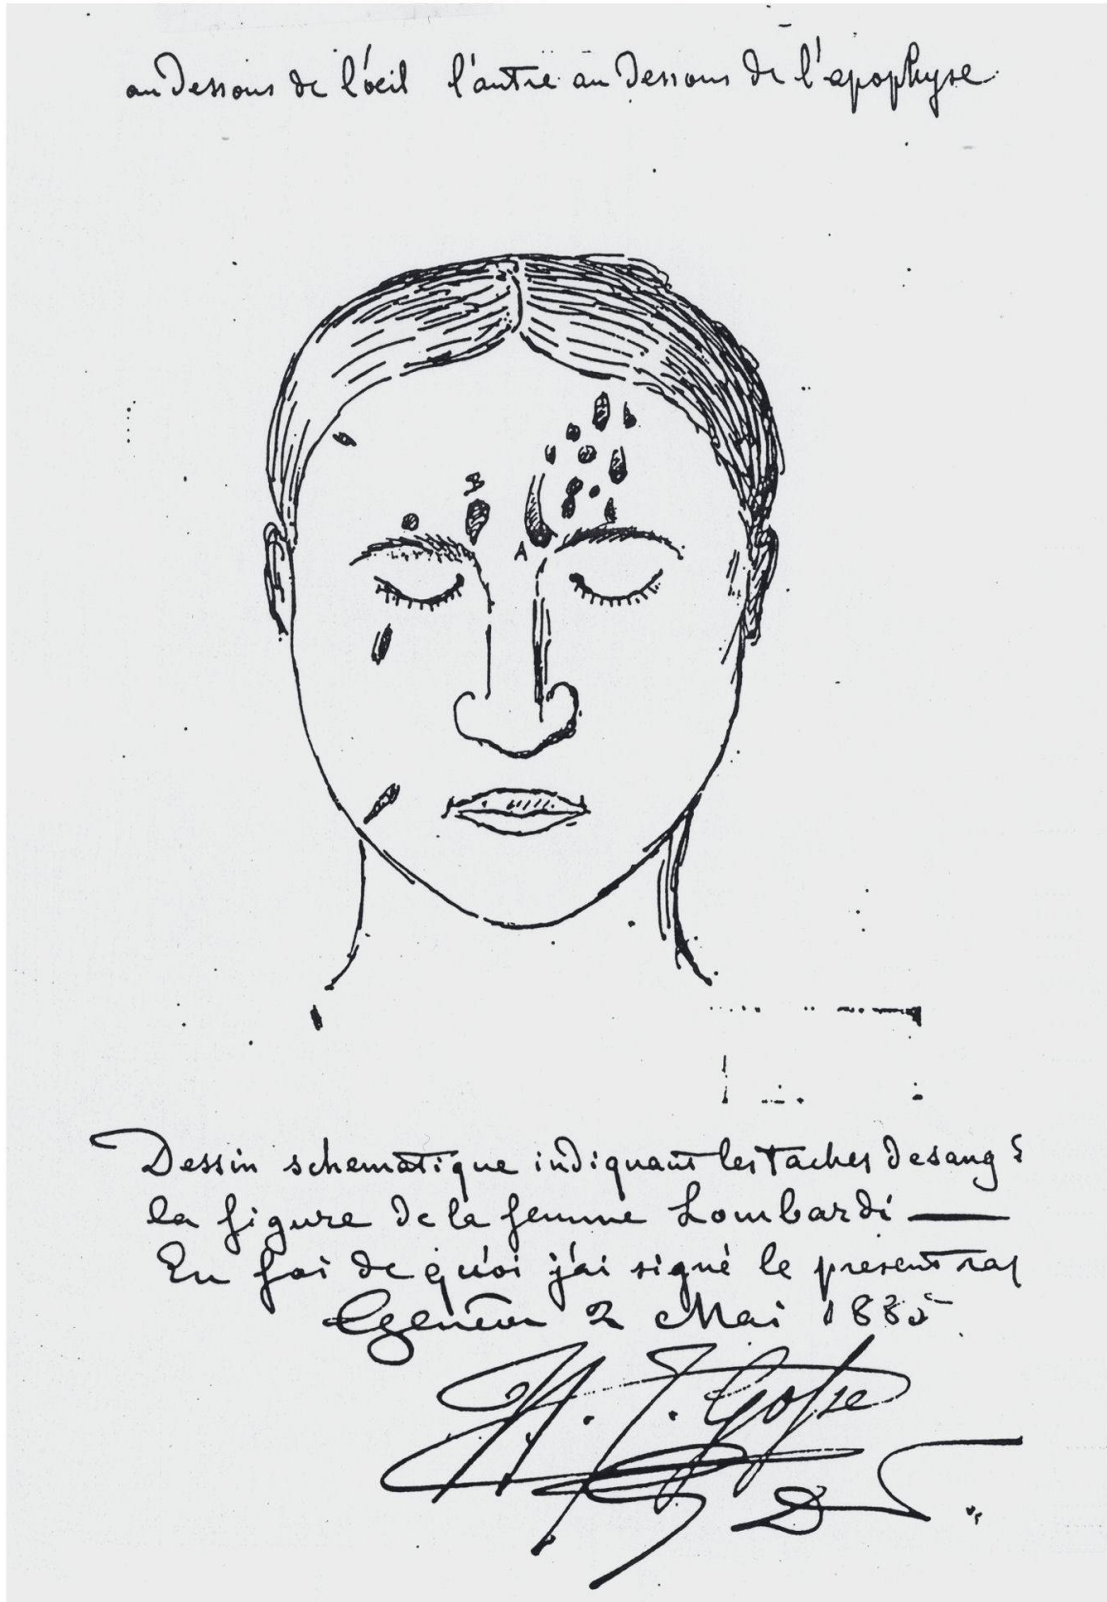 au dessous de l'œil l'autre au dessous de l'apophyse
B
A
Dessin schematique indiquant les taches de sang
la figure de la femme Lombardi —
En foi de quoi j'ai signé le present rap
Genève 2 Mai 1885
H. J. Gosse
D